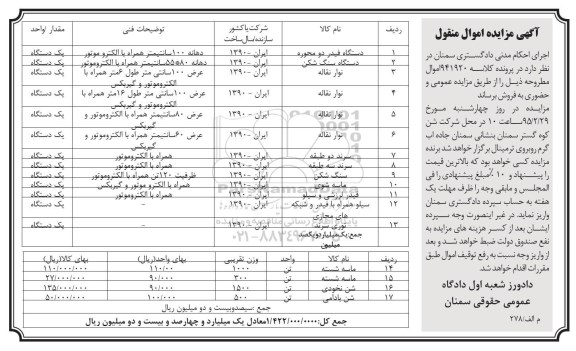 آگهی مزایده اموال منقول
اجرای احکام مدنی دادگستری سمنان در
نظر دارد در پرونده کلاسه ۹۴۱۹۲۰ اموال
مطروحه ذیل را از طریق مزایده عمومی و
حضوری به فروش برساند
مزایده در روز چهارشنبه مورخ
۹۵/۲/۲۹ ساعت ۱۰ در محل شرکت شن
کوه گستر سمنان بنشانی سمنان جاده اب
گرم روبروی ترمینال برگزار خواهد شد برنده
مزایده کسی خواهد بود که بالاترین قیمت
را پیشنهاد و ۱۰٪ مبلغ پیشنهادی را فی
المجلس و مابقی وجه را ظرف مهلت یک
هفته به حساب سپرده دادگستری سمنان
واریز نماید. در غیر اینصورت وجه سپرده
ایشان بعد از کسر هزینه های مزایده به
نفع صندوق دولت ضبط خواهد شد و بعد
از واریز وجه نسبت به رفع توقیف اموال طبق
مقررات اقدام خواهد شد.
دادورز شعبه اول دادگاه
عمومی حقوقی سمنان
م الف/۲۷۸
ردیف نام کالا شرکت یا کشور سازنده/سال ساخت توضیحات فنی مقدار/واحد
۱ دستگاه فیدر دو محوره ایران -۱۳۹۰ دهانه ۱۰۰سانتیمتر همراه با الکترو موتور یک دستگاه
۲ دستگاه سنگ شکن ایران -۱۳۹۰ دهانه ۸۰*۵۵سانتیمتر همراه با الکتروموتور یک دستگاه
۳ نوار نقاله ایران -۱۳۹۰ عرض ۱۰۰سانتی متر طول ۶متر همراه با الکتروموتور و گیربکس یک دستگاه
۴ نوار نقاله ایران -۱۳۹۰ عرض ۱۰۰سانتی متر طول ۱۶متر همراه با الکتروموتور و گیربکس یک دستگاه
۵ نوار نقاله ایران -۱۳۹۰ عرض ۸۰سانتیمتر همراه با الکتروموتور و گیربکس یک دستگاه
۶ نوار نقاله ایران -۱۳۹۰ عرض ۶۰سانتیمتر همراه با الکتروموتور و گیربکس یک دستگاه
۷ سرند دو طبقه ایران -۱۳۹۰ همراه با الکتروموتور یک دستگاه
۸ سرند سه طبقه ایران -۱۳۹۰ همراه با الکتروموتور یک دستگاه
۹ سنگ شکن ایران -۱۳۹۰ ظرفیت ۱۲۰تن همراه با الکتروموتور یک دستگاه
۱۰ ماسه شوی ایران -۱۳۹۰ همراه با الکترو موتور و گیربکس یک دستگاه
۱۱ فیدر برزنتی و سیلو ایران -۱۳۹۰ همراه با الکتروموتور یک دستگاه
۱۲ سیلو همراه با فیدر و شبکه های مجازی ایران -۱۳۹۰ - یک دستگاه
۱۳ توری سرند ایران -۱۳۹۰ - یک دستگاه
جمع:یک میلیارد و یکصد میلیون
ردیف نام کالا واحد وزن تقریبی بهای واحد(ریال) بهای کالا(ریال)
۱۴ ماسه شسته تن ۱۰۰۰ ۱۱۰/۰۰۰ ۱۱۰/۰۰۰/۰۰۰
۱۵ ماسه شسته تن ۳۰۰ ۹۰/۰۰۰ ۲۷/۰۰۰/۰۰۰
۱۶ شن نخودی تن ۱۵۰۰ ۹۰/۰۰۰ ۱۳۵/۰۰۰/۰۰۰
۱۷ شن بادامی تن ۵۰۰ ۱۰۰/۰۰۰ ۵۰/۰۰۰/۰۰۰
جمع :سیصدوبیست و دو میلیون ریال
جمع کل:۱/۴۲۲/۰۰۰/۰۰۰معادل یک میلیارد و چهارصد و بیست و دو میلیون ریال